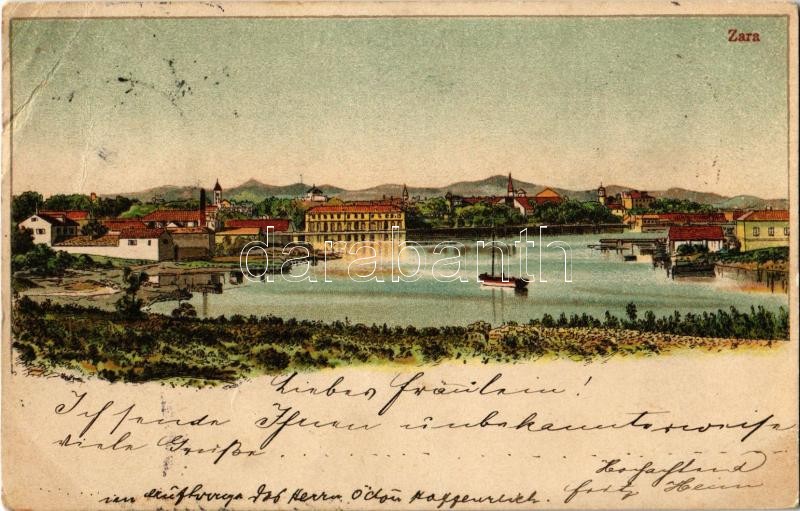 Zara
darabanth
Liebes Fräulein!
Ich sende Ihnen unbekannterweise
viele Grüße
Hochachtend
Fritz Heim
im Auftrage des Herrn Ödön